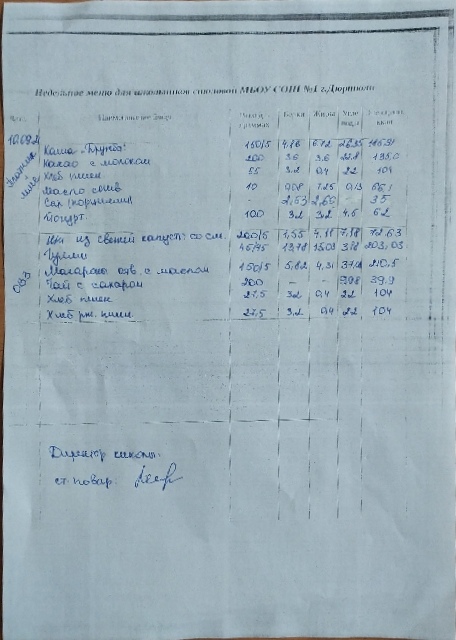 Недельное меню для школьников столовой МБОУ СОШ №1 г.Дюртюли
Наименование блюд Белки Жиры
Каша "Дружба" 150/5 4,76 6,72
Какао с молоком 200 3,6 3,6 135,0
Хлеб пшен 55 3,2 0,4 22 104
Масло слив 10 0,08 7,25 0,13 66,1
Сыр (порциями) - 2,53 2,60 - 35
Йогурт 100 3,2 3,2 4,5 62
Щи из свежей капусты со см. 200/5 1,55 4,11 7,18 72,63
45/45 13,78 203,03
Макароны отв. с маслом 150/5 5,82 4,31 210,5
Чай с сахаром 200 - - 9,98 39,9
Хлеб пшен 27,5 3,2 0,4 22 104
Хлеб рж. пшен 27,5 3,2 0,4 22 104
Директор школы:
ст. повар: